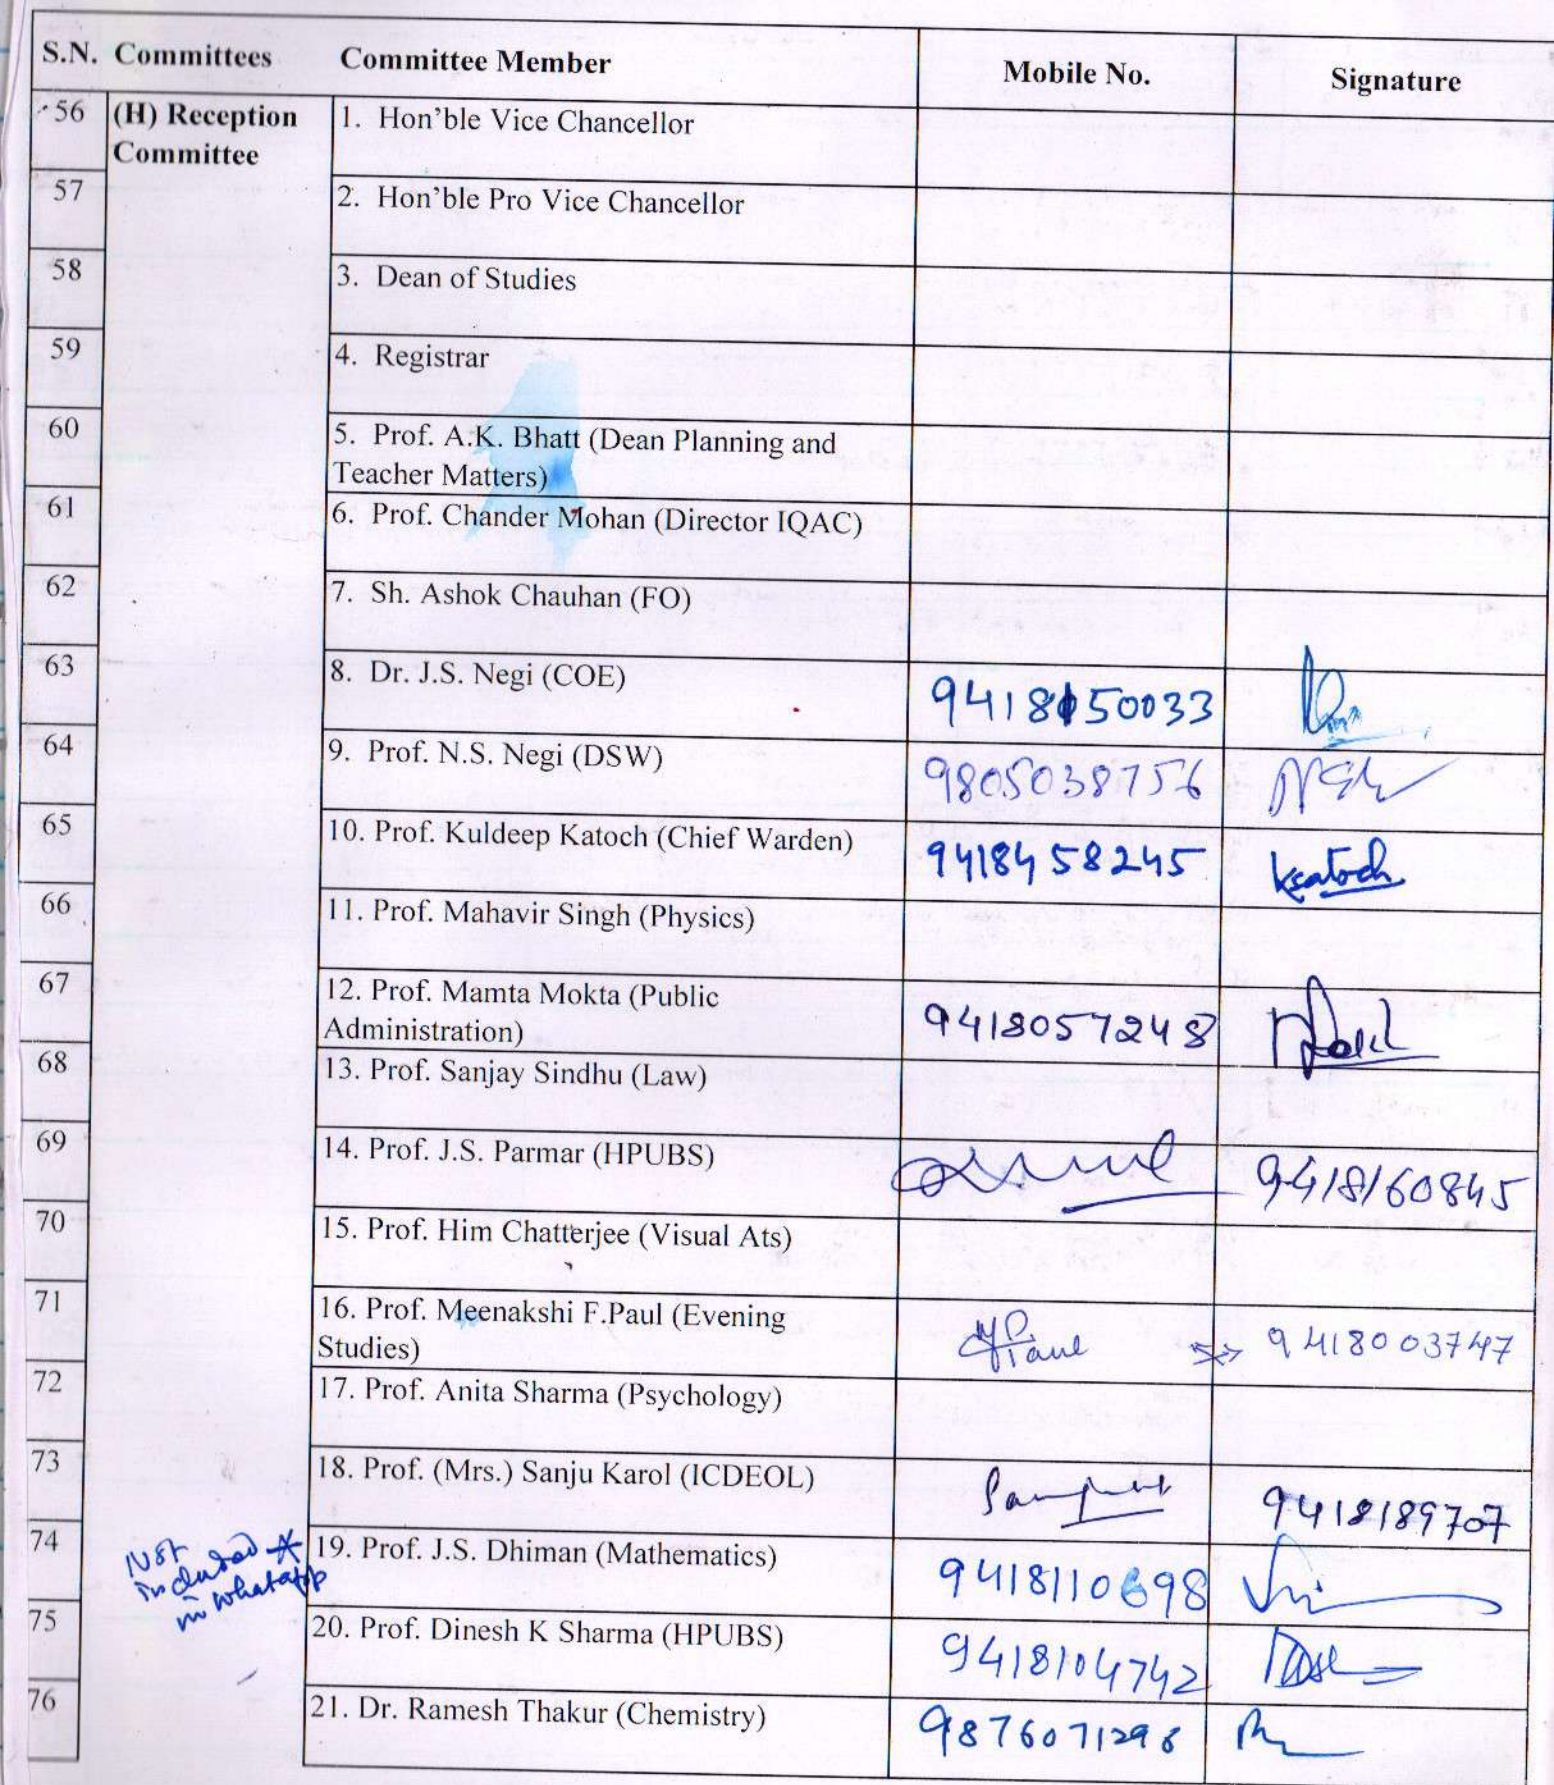 S.N. Committees Committee Member Mobile No. Signature
56 (H) Reception 1. Hon'ble Vice Chancellor
Committee
57 2. Hon'ble Pro Vice Chancellor
58 3. Dean of Studies
59 4. Registrar
60 5. Prof. A.K. Bhatt (Dean Planning and
Teacher Matters)
61 6. Prof. Chander Mohan (Director IQAC)
62 7. Sh. Ashok Chauhan (FO)
63 8. Dr. J.S. Negi (COE) 9418150033
64 9. Prof. N.S. Negi (DSW) 9805038756
65 10. Prof. Kuldeep Katoch (Chief Warden) 9418458245 Kcatoch
66 11. Prof. Mahavir Singh (Physics)
67 12. Prof. Mamta Mokta (Public
Administration) 9418057248
68 13. Prof. Sanjay Sindhu (Law)
69 14. Prof. J.S. Parmar (HPUBS) 9418160845
70 15. Prof. Him Chatterjee (Visual Ats)
71 16. Prof. Meenakshi F.Paul (Evening
Studies) MPaul 9418003747
72 17. Prof. Anita Sharma (Psychology)
73 18. Prof. (Mrs.) Sanju Karol (ICDEOL) 9418189707
74 19. Prof. J.S. Dhiman (Mathematics) 9418110698
Not
included *
in whatsapp
75 20. Prof. Dinesh K Sharma (HPUBS) 9418104742
76 21. Dr. Ramesh Thakur (Chemistry) 9876071296